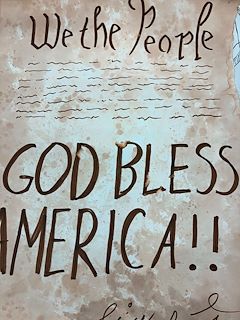 We the People
GOD BLESS
AMERICA!!